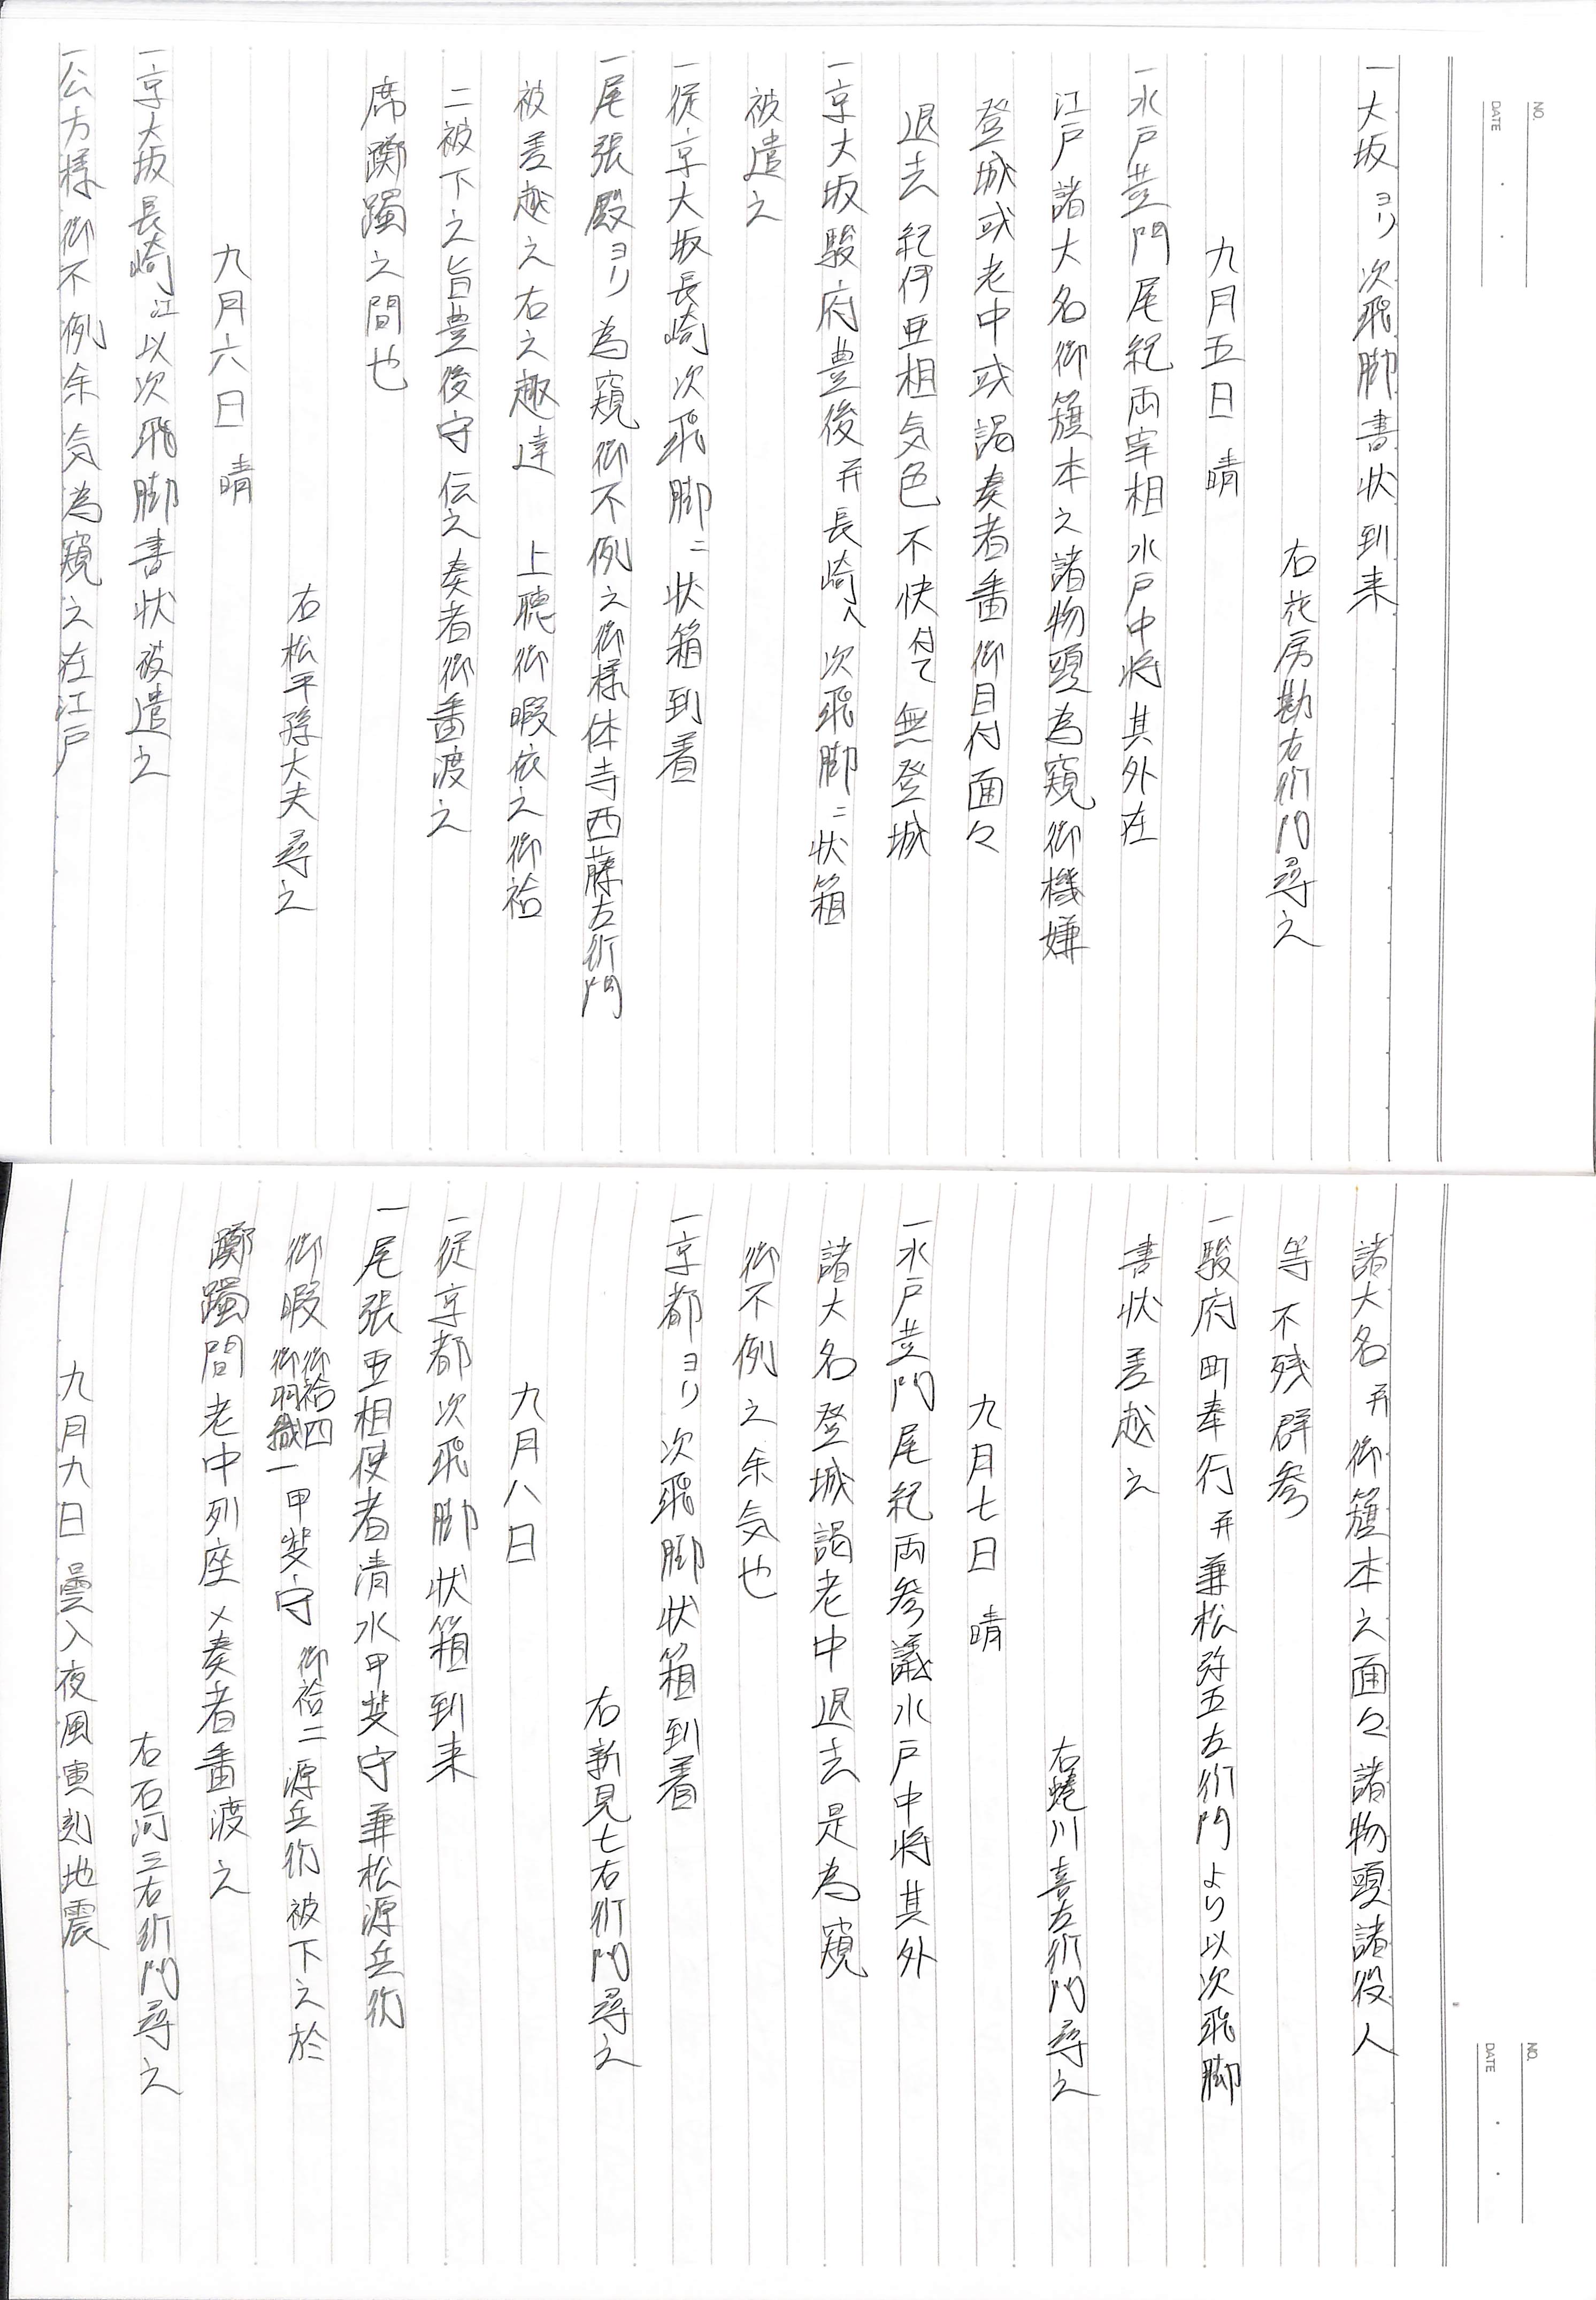 NO.
DATE
一大坂ヨリ次飛脚書状到来
右花房勘右衛門尋之
九月五日 晴
一水戸黄門尾紀両宰相水戸中将其外在
江戸諸大名御籏本之諸物頭為窺御機嫌
登城或老中或謁奏者番御目付面々
退去紀伊亜相気色不快付て無登城
一京大坂駿府豊後并長崎へ次飛脚ニ状箱
被遣之
一従京大坂長崎次飛脚ニ状箱到着
一尾張殿ヨリ為窺御不例之御様体寺西藤左衛門
被差越之右之趣達 上聴御暇依之御袷
二被下之旨豊後守伝之奏者御番渡之
席躑躅之間也
右松平孫大夫尋之
九月六日 晴
一京大坂長崎江以次飛脚書状被遣之
一公方様御不例余気為窺之在江戸
NO.
DATE
諸大名并御籏本之面々諸物頭諸役人
等不残群参
一駿府町奉行并兼松弥五左衛門より以次飛脚
書状差越之
右蜷川喜左衛門尋之
九月七日 晴
一水戸黄門尾紀両参議水戸中将其外
諸大名登城謁老中退去是為窺
御不例之余気也
一京都ヨリ次飛脚状箱到着
右新見七右衛門尋之
九月八日
一従京都次飛脚状箱到来
一尾張亜相使者清水甲斐守兼松源兵衛
御暇御袷四御羽織一甲斐守 御袷二源兵衛被下之於
躑躅間老中列座〆奏者番渡之
右石河三右衛門尋之
九月九日 曇入夜風寅刻地震